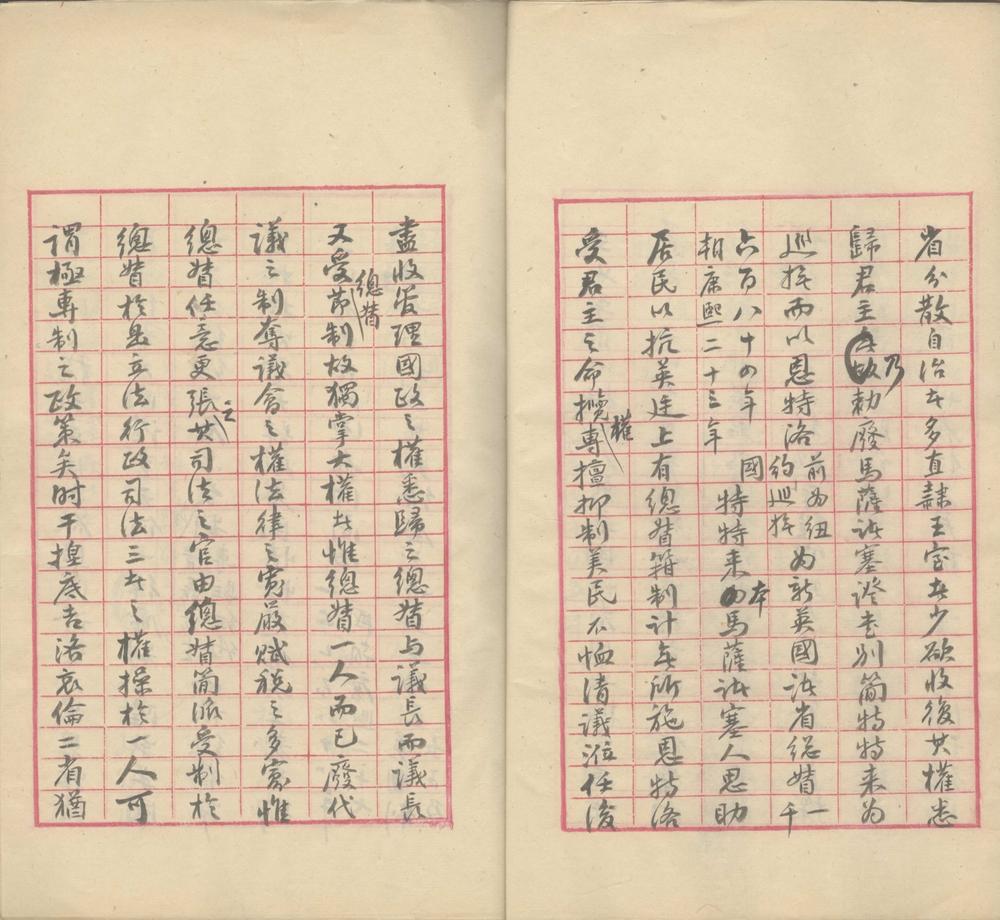 省分散自治者多直隸王室者少欲收復其權悉
歸君主乃敕廢馬薩諸塞證書別簡特特來為
巡撫而以恩特洛前為紐約巡撫為新英國諸省總督一千
六百八十四年國朝康熙二十三年特特來本馬薩諸塞人思助
居民以抗英廷上有總督箝制計無所施恩特洛
受君主之命攬權專擅抑制美民不恤清議涖任後
盡收管理國政之權悉歸之總督与議長而議長
又受總督節制故獨掌大權者惟總督一人而已廢代
議之制奪議會之權法律之寬嚴賦稅之多寡惟
總督任意更張之其司法之官由總督簡派受制於
總督於是立法行政司法三者之權操於一人可
謂極專制之政策矣时干捏底吉洛哀倫二省猶